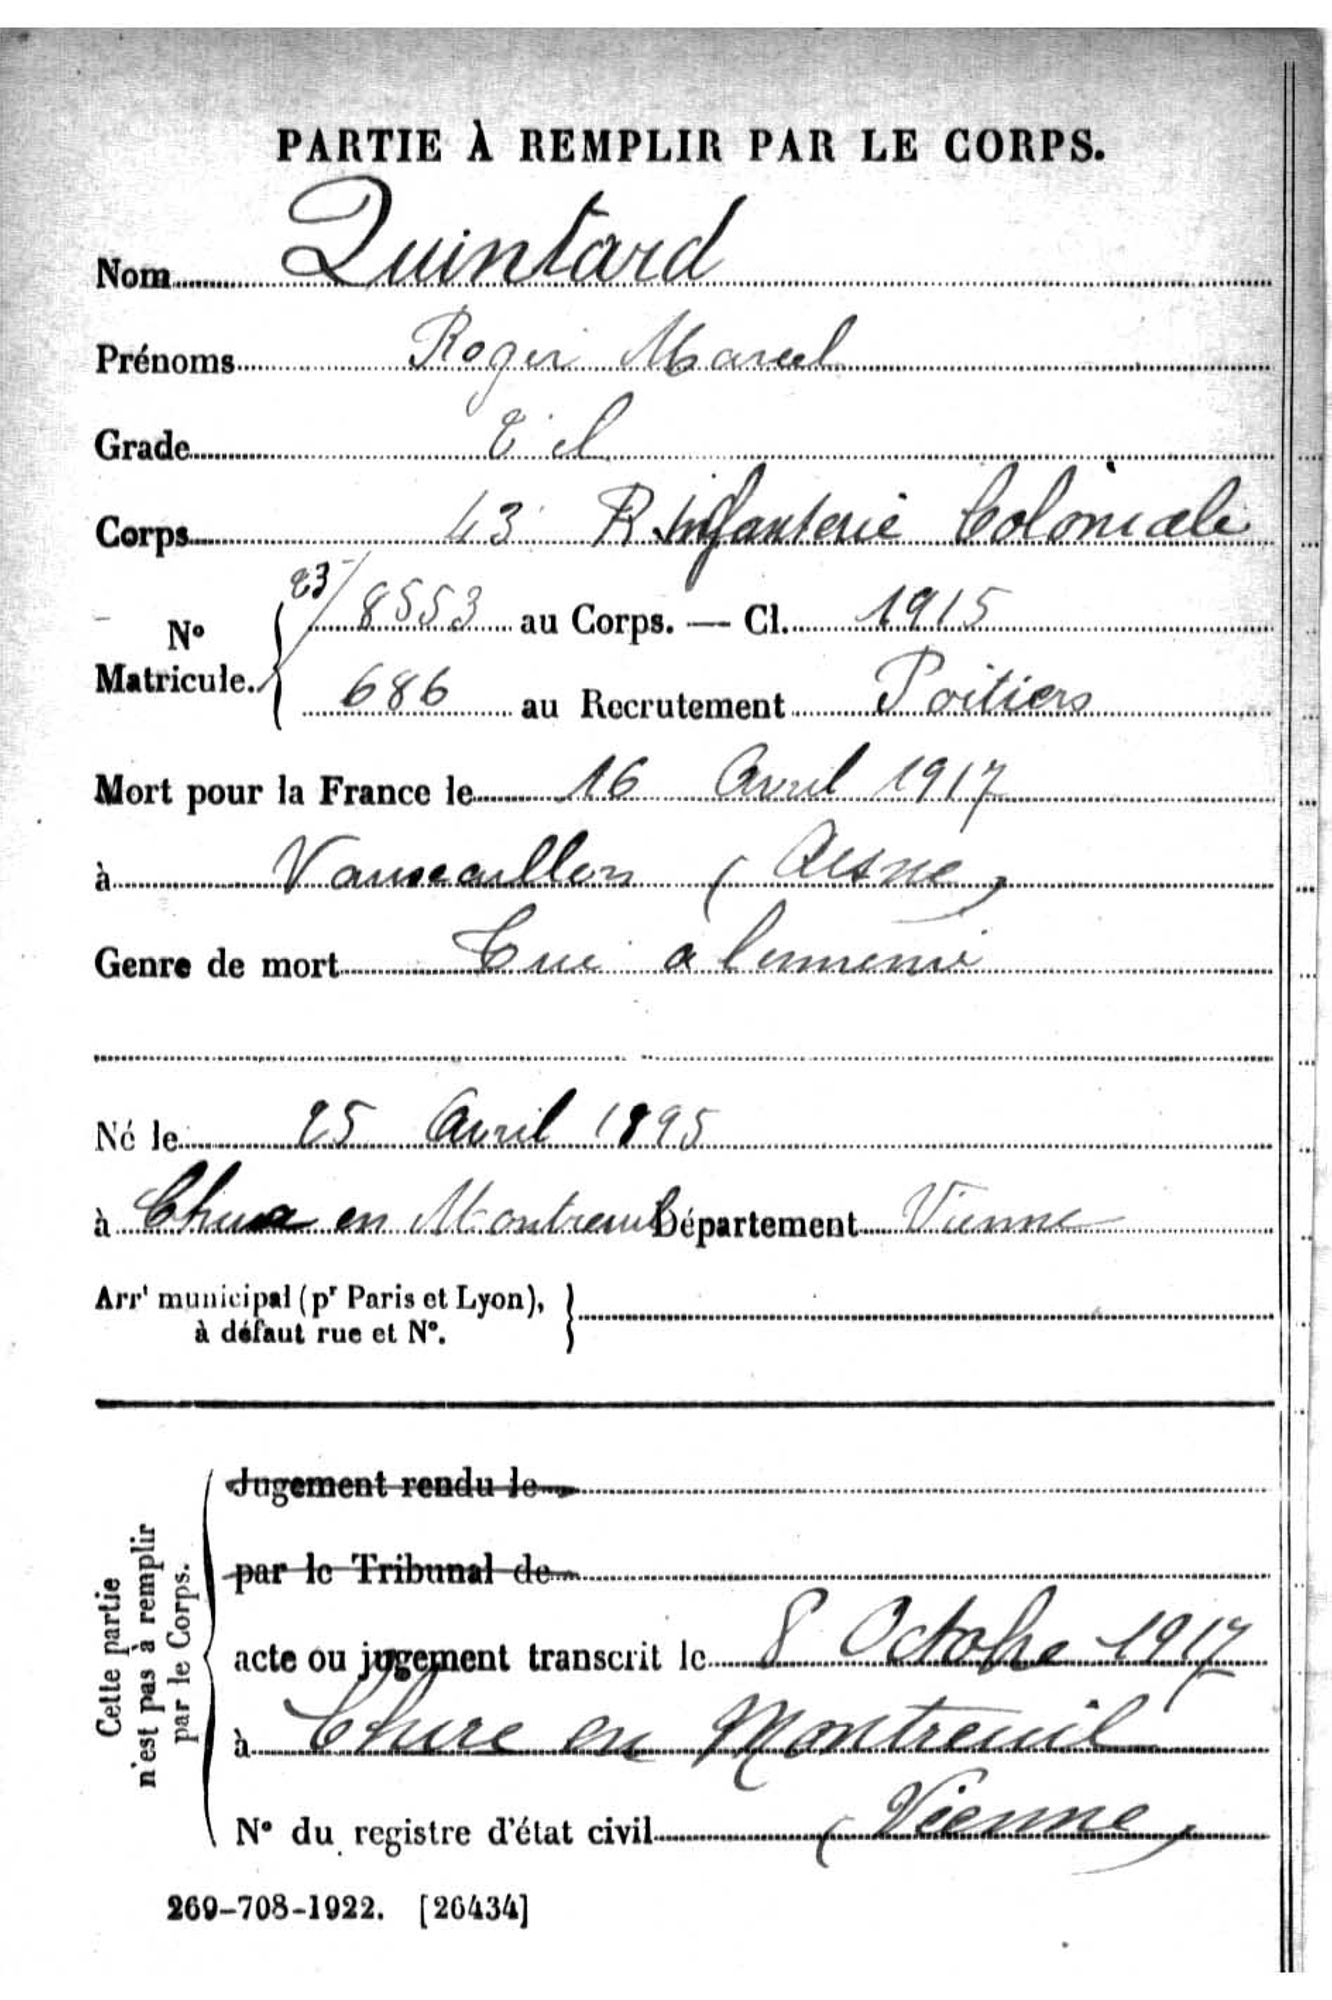 PARTIE À REMPLIR PAR LE CORPS.
Nom Quintard
Prénoms Roger Marcel
Grade
Corps 43 R. Infanterie Coloniale
23/8553 au Corps. — Cl. 1915
N°
Matricule.
686 au Recrutement Poitiers
Mort pour la France le 16 Avril 1917
à (Aisne)
Genre de mort Tué à l'ennemi
Né le 25 Avril 1895
à en Montreuil Département Vienne
Arrt municipal (pr Paris et Lyon),
à défaut rue et N°.
Cette partie
n'est pas à remplir
par le Corps.
Jugement rendu le
par le Tribunal de
acte ou jugement transcrit le 8 Octobre 1917
à Chire en Montreuil
N° du registre d'état civil (Vienne)
269-708-1922. [26434]